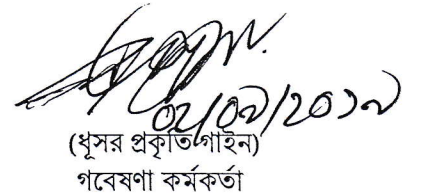 ০২/০৯/২০১৯
(ধূসর প্রকৃতি গাইন)
গবেষণা কর্মকর্তা